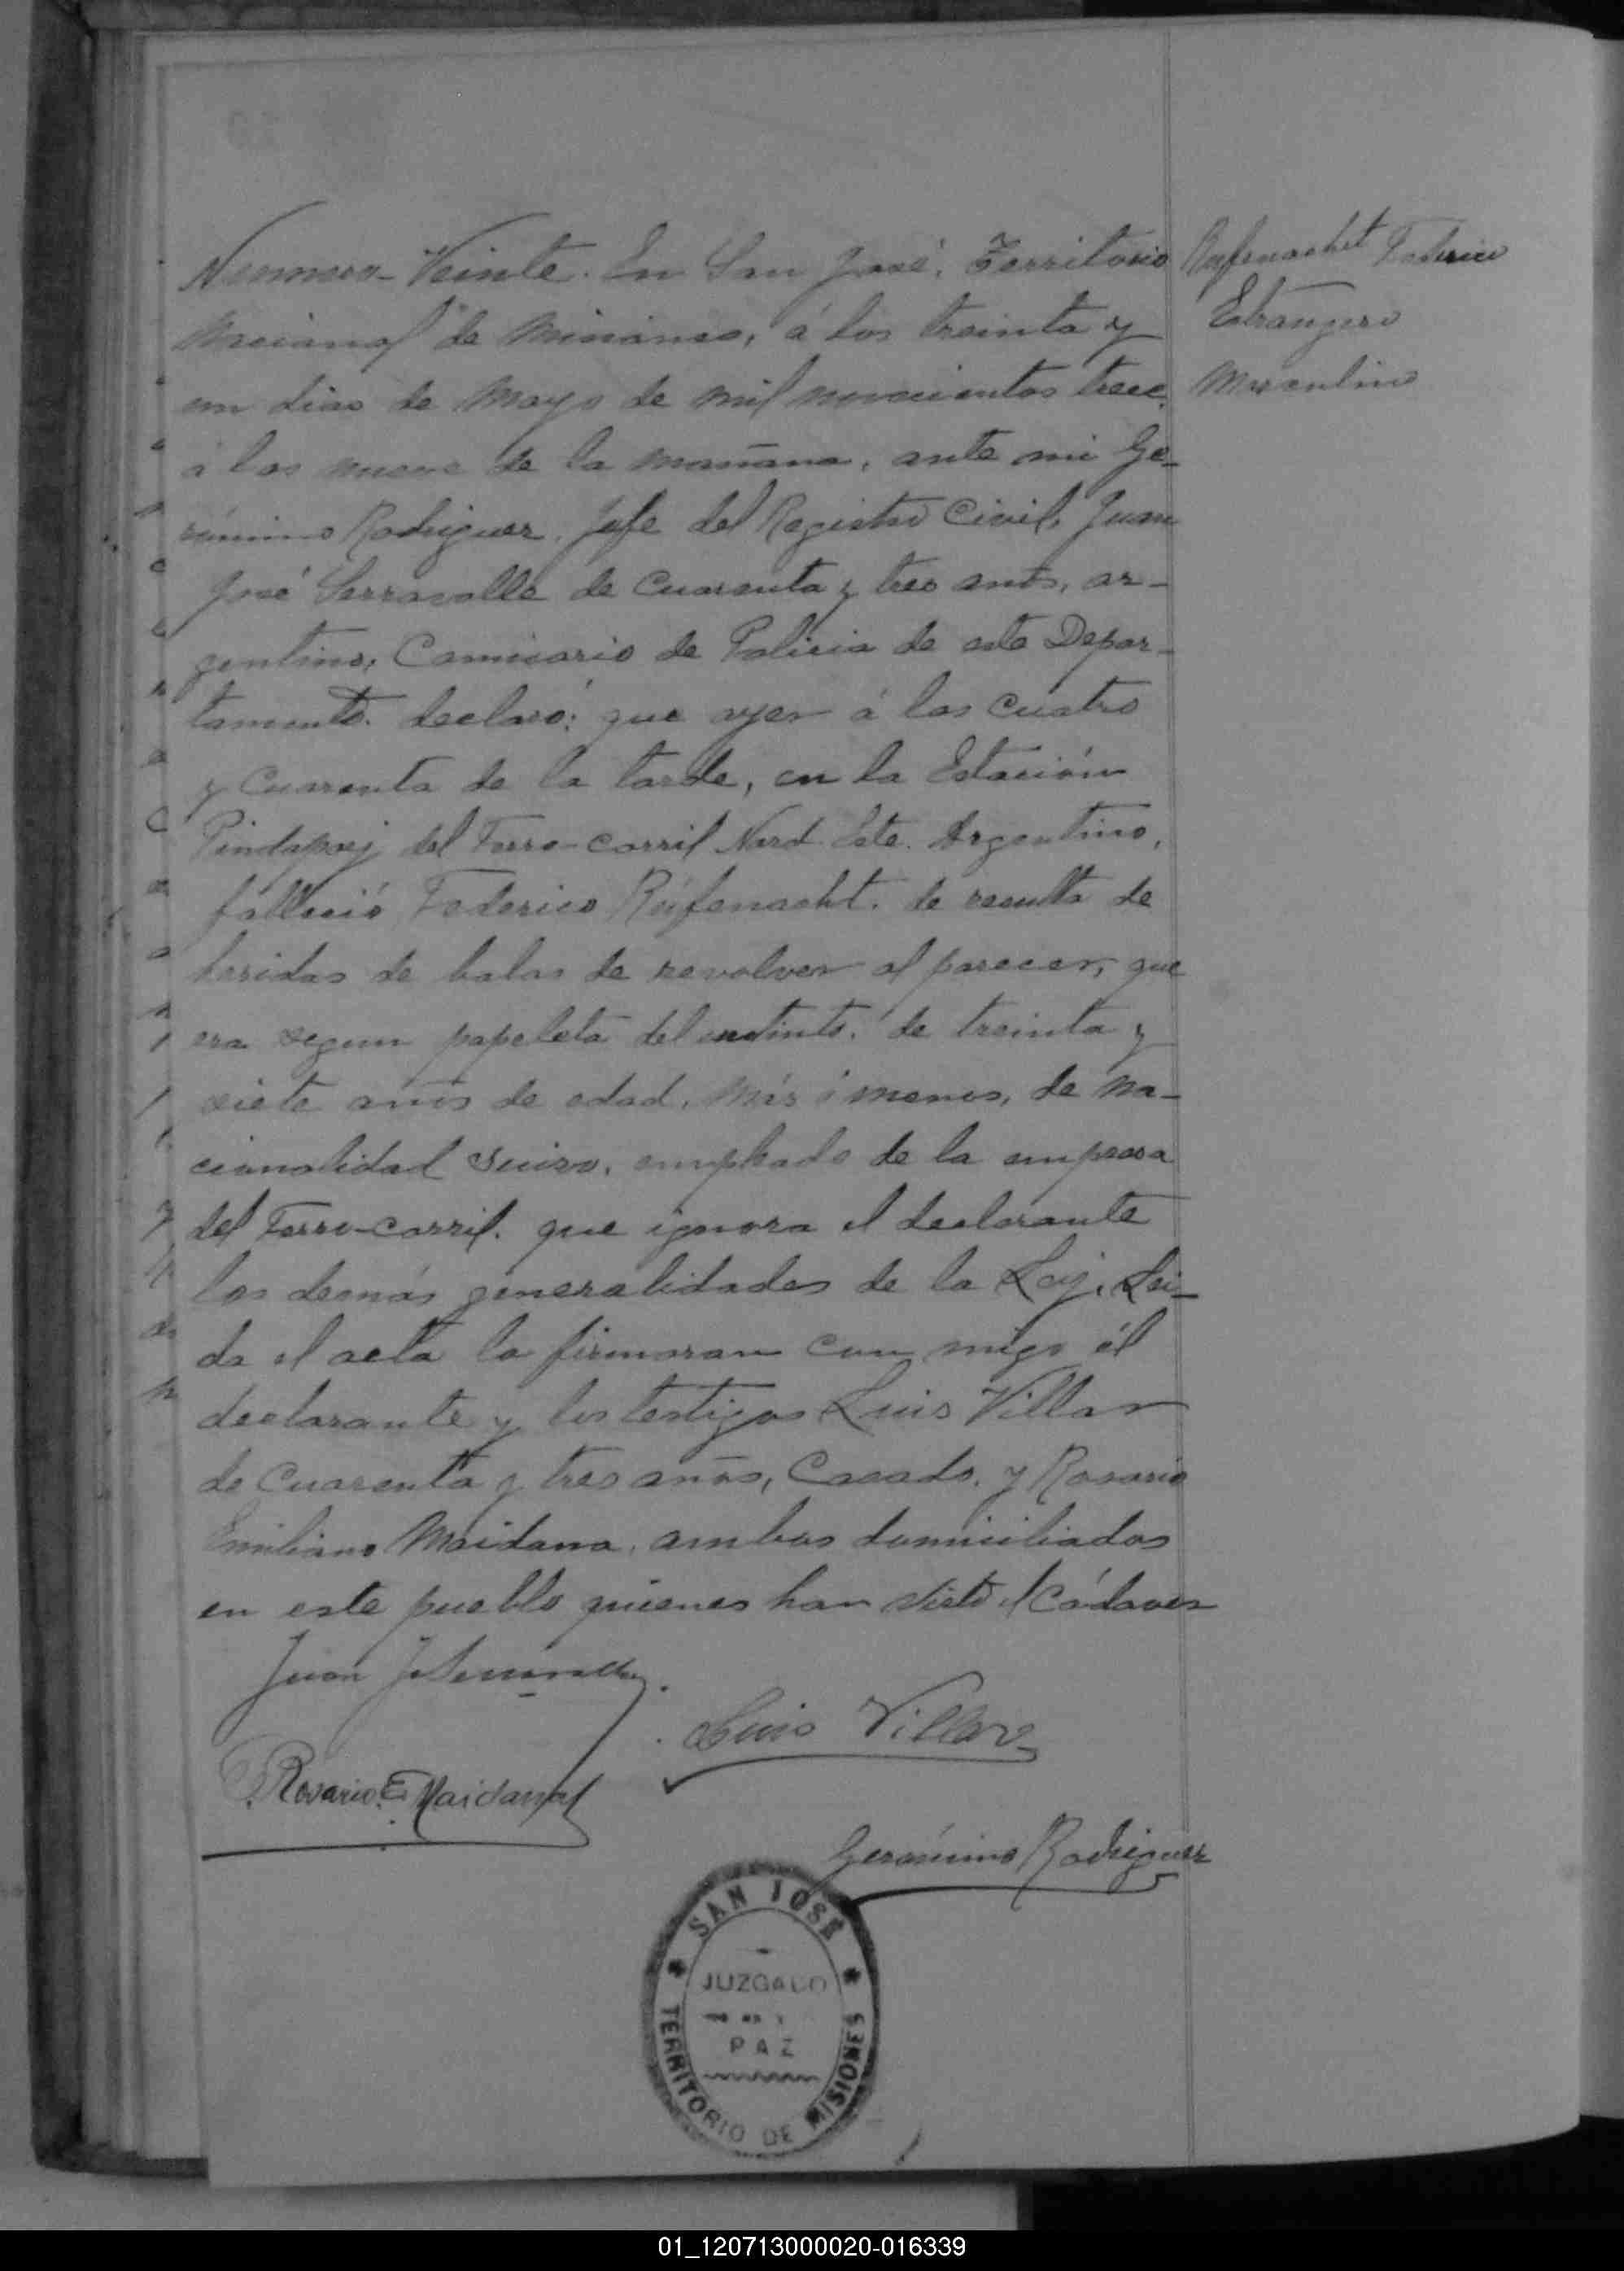 Rúfenacht Federico
Estrangero
Masculino
Numero Veinte. En San José, Territorio
Nacional de Misiones, á los treinta y
un dias de Mayo de mil novecientos trece,
á las nueve de la mañana, ante mi Ge-
rónimo Rodriguez, Jefe del Registro Civil, Juan
José Serravalle de cuarenta y tres anõs, ar-
gentino, Comisario de Policia de este Depar-
tamento. declaró: que ayer á las cuatro
y cuarenta de la tarde, en la Estación
Pindapoy del Ferro-carril Nord Este Argentino,
falleció Federico Rúfenacht. de resulta de
heridas de balas de revolver al parecer, que
era segun papeleta del extinto. de treinta y
siete anõs de edad, más ó menos, de na-
cionalidad suizo, empleado de la empresa
del Ferro-carril. que ignora el declarante
las demás generalidades de la Ley. Lei-
da el acta la firmaran con migo él
declarante y los testigos Luis Villar
de cuarenta y tres años, Casado. y Rosario
Emiliano Maidana, ambos domiciliados
en este pueblo quienes han visto el Cádaver
Juan J Serravalle
Luis Villar
Rosario E Maidana
Gerónimo Rodriguez
SAN JOSÉ
JUZGADO
PAZ
TERRITORIO DE MISIONES
01_120713000020-016339